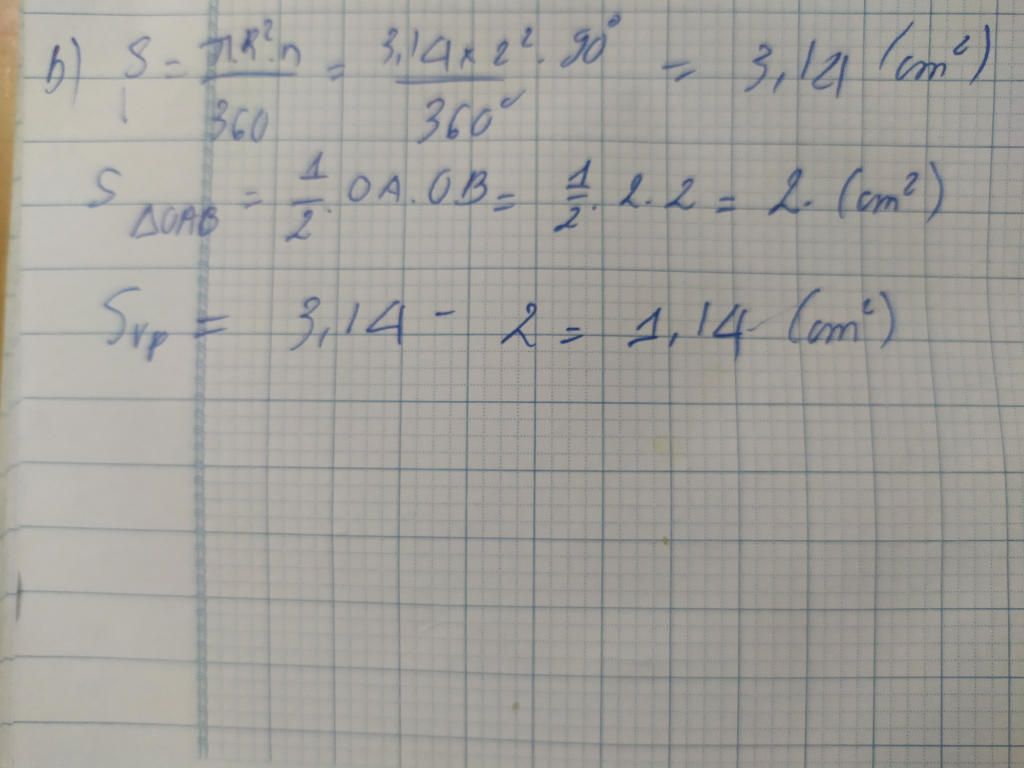 b) S = πR².n / 360 = 3,14 x 2² . 90° / 360° = 3,14 (cm²)
S ΔOAB = 1/2 . OA . OB = 1/2 . 2 . 2 = 2. (cm²)
Svp = 3,14 - 2 = 1,14 (cm²)